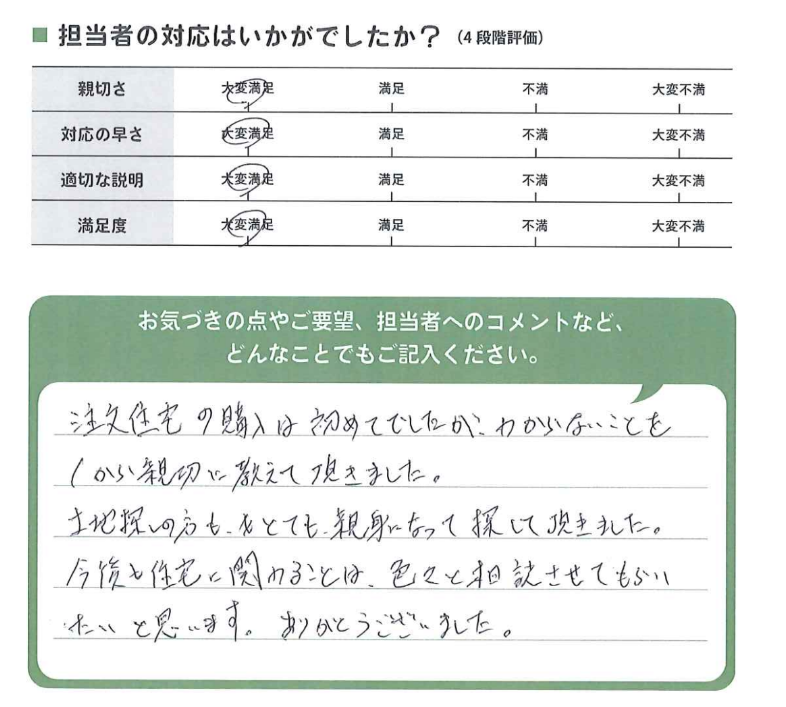 ■ 担当者の対応はいかがでしたか？（4段階評価）
親切さ 大変満足 満足 不満 大変不満
対応の早さ 大変満足 満足 不満 大変不満
適切な説明 大変満足 満足 不満 大変不満
満足度 大変満足 満足 不満 大変不満
お気づきの点やご要望、担当者へのコメントなど、
どんなことでもご記入ください。
注文住宅の購入は初めてでしたが、わからないことを
1から親切に教えて頂きました。
土地探しの方も、とても、親身になって探して頂きました。
今後も住宅に関わることは、色々と相談させてもらい
たいと思います。ありがとうございました。